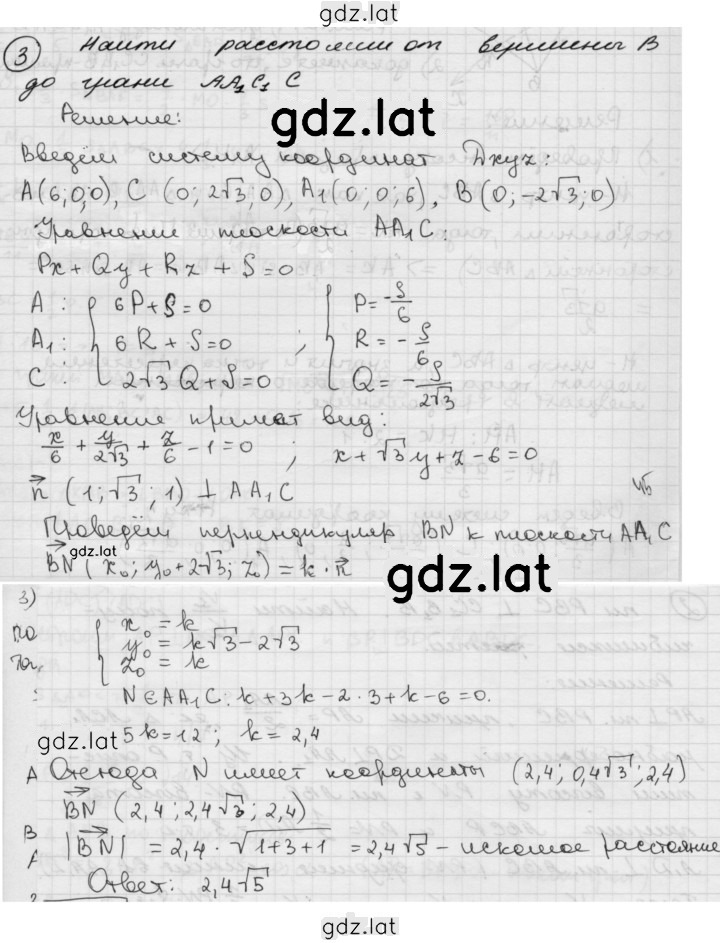 gdz.lat
③ Найти расстоянии от вершины B
до грани AA₁C₁C
gdz.lat
Решение:
Введём систему координат Dxyz:
A(6;0;0), C (0; 2√3; 0), A₁(0; 0; 6), B(0; -2√3; 0)
Уравнении плоскости AA₁C:
Px + Qy + Rz + S = 0
A: { 6P + S = 0 ; { P = -S/6
A₁: { 6R + S = 0 { R = -S/6
C: { 2√3 Q + S = 0 { Q = -S/2√3
Уравнение примет вид:
x/6 + y/2√3 + z/6 - 1 = 0 ; x + √3 y + z - 6 = 0
n⃗ (1; √3; 1) ⊥ AA₁C
Проведём перпендикуляр BN к плоскости AA₁C
gdz.lat
BN⃗ (x₀; y₀ + 2√3; z₀) = k · n⃗
gdz.lat
3)
{ x₀ = k
{ y₀ = k√3 - 2√3
{ z₀ = k
N ∈ AA₁C: k + 3k - 2·3 + k - 6 = 0.
gdz.lat
5k = 12 ; k = 2,4
Отсюда N имеет координаты (2,4; 0,4√3; 2,4)
BN⃗ (2,4; 2,4√3; 2,4)
|BN⃗| = 2,4 · √(1+3+1) = 2,4√5 - искомое расстояние
Ответ: 2,4√5
gdz.lat